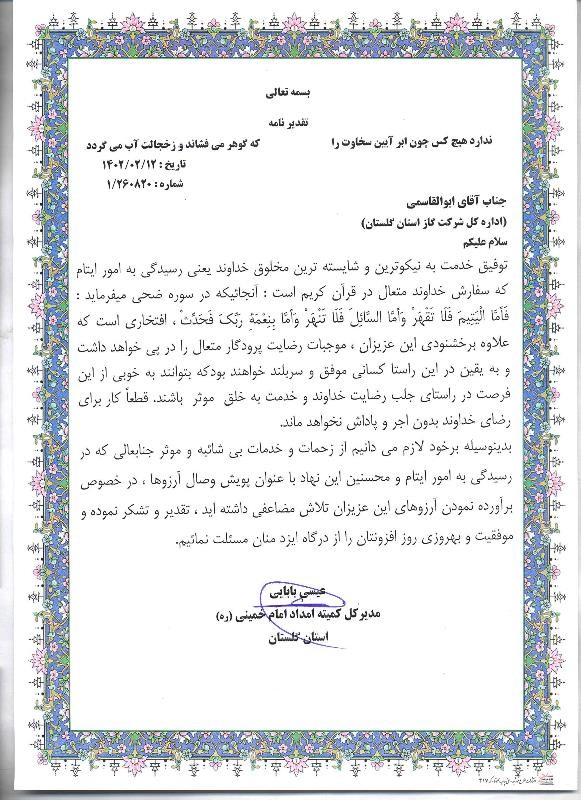 بسمه تعالی
تقدیر نامه
ندارد هیچ کس چون ابر آیین سخاوت را که گوهر می فشاند و زخجالت آب می گردد
تاریخ : ۱۴۰۲/۰۲/۱۲
شماره : ۱/۲۶۰۸۲۰
جناب آقای ابوالقاسمی
(اداره کل شرکت گاز استان گلستان)
سلام علیکم
توفیق خدمت به نیکوترین و شایسته ترین مخلوق خداوند یعنی رسیدگی به امور ایتام
که سفارش خداوند متعال در قرآن کریم است : آنجائیکه در سوره ضحی میفرماید :
فَأَمَّا الْیَتِیمَ فَلَا تَقْهَرْ وَأَمَّا السَّائِلَ فَلَا تَنْهَرْ وَأَمَّا بِنِعْمَةِ رَبِّکَ فَحَدِّثْ ، افتخاری است که
علاوه برخشنودی این عزیزان ، موجبات رضایت پرودگار متعال را در پی خواهد داشت
و به یقین در این راستا کسانی موفق و سربلند خواهند بودکه بتوانند به خوبی از این
فرصت در راستای جلب رضایت خداوند و خدمت به خلق موثر باشند. قطعاً کار برای
رضای خداوند بدون اجر و پاداش نخواهد ماند.
بدینوسیله برخود لازم می دانیم از زحمات و خدمات بی شائبه و موثر جنابعالی که در
رسیدگی به امور ایتام و محسنین این نهاد با عنوان پویش وصال آرزوها ، در خصوص
برآورده نمودن آرزوهای این عزیزان تلاش مضاعفی داشته اید ، تقدیر و تشکر نموده و
موفقیت و بهروزی روز افزونتان را از درگاه ایزد منان مسئلت نمائیم.
عیسی بابایی
مدیرکل کمیته امداد امام خمینی (ره)
استان گلستان